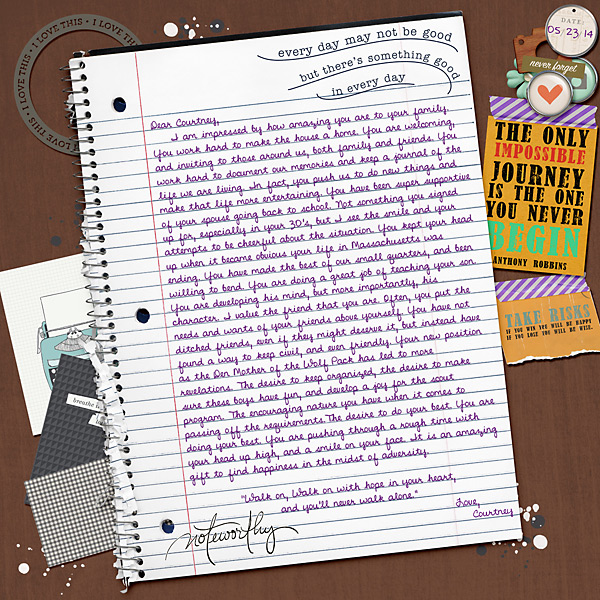 I LOVE THIS • I LOVE THIS • I LOVE THIS • I LOVE THIS
every day may not be good
but there's something good
in every day
DATE:
05/23/14
never forget
Dear Courtney,
I am impressed by how amazing you are to your family.
You work hard to make the house a home. You are welcoming,
and inviting to those around us, both family and friends. You
work hard to document our memories and keep a journal of the
life we are living. In fact, you push us to do new things and
make that life more entertaining. You have been super supportive
of your spouse going back to school. Not something you signed
up for, especially in your 30's, but I see the smile and your
attempts to be cheerful about the situation. You kept your head
up when it became obvious your life in Massachusetts was
ending. You have made the best of our small quarters, and been
willing to bend. You are doing a great job of teaching your son.
You are developing his mind, but more importantly, his
character. I value the friend that you are. Often, you put the
needs and wants of your friends above yourself. You have not
ditched friends, even if they might deserve it, but instead have
found a way to keep civil, and even friendly. Your new position
as the Den Mother of the Wolf Pack has led to more
revelations. The desire to keep organized, the desire to make
sure these boys have fun, and develop a joy for the scout
program. The encouraging nature you have when it comes to
passing off the requirements. The desire to do your best. You are
doing your best. You are pushing through a rough time with
your head up high, and a smile on your face. It is an amazing
gift to find happiness in the midst of adversity.
"Walk on, Walk on with hope in your heart,
and you'll never walk alone."
Love,
Courtney
noteworthy
THE ONLY
IMPOSSIBLE
JOURNEY
IS THE ONE
YOU NEVER
BEGIN
ANTHONY ROBBINS
TAKE RISKS
IF YOU WIN YOU WILL BE HAPPY
IF YOU LOSE YOU WILL BE WISE.
breathe